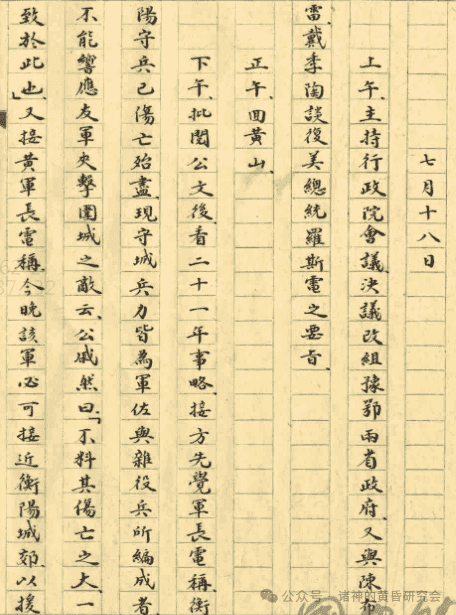 七月十八日
上午、主持行政院會議、決議改組豫鄂兩省政府、又與陳布
雷、戴季陶談復美總統羅斯電之要旨、
正午、回黃山、
下午、批閱公文後、看二十一年事略、接方先覺軍長電稱、衡
陽守兵已傷亡殆盡、現守城兵力皆為軍佐與雜役兵所編成者、
不能響應友軍夾擊圍城之敵云、公戚然曰、「不料其傷亡之大、一
致於此也、」又接黃軍長電稱、今晚該軍必可接近衡陽城郊、以援
公众号 诸神的黄昏研究会